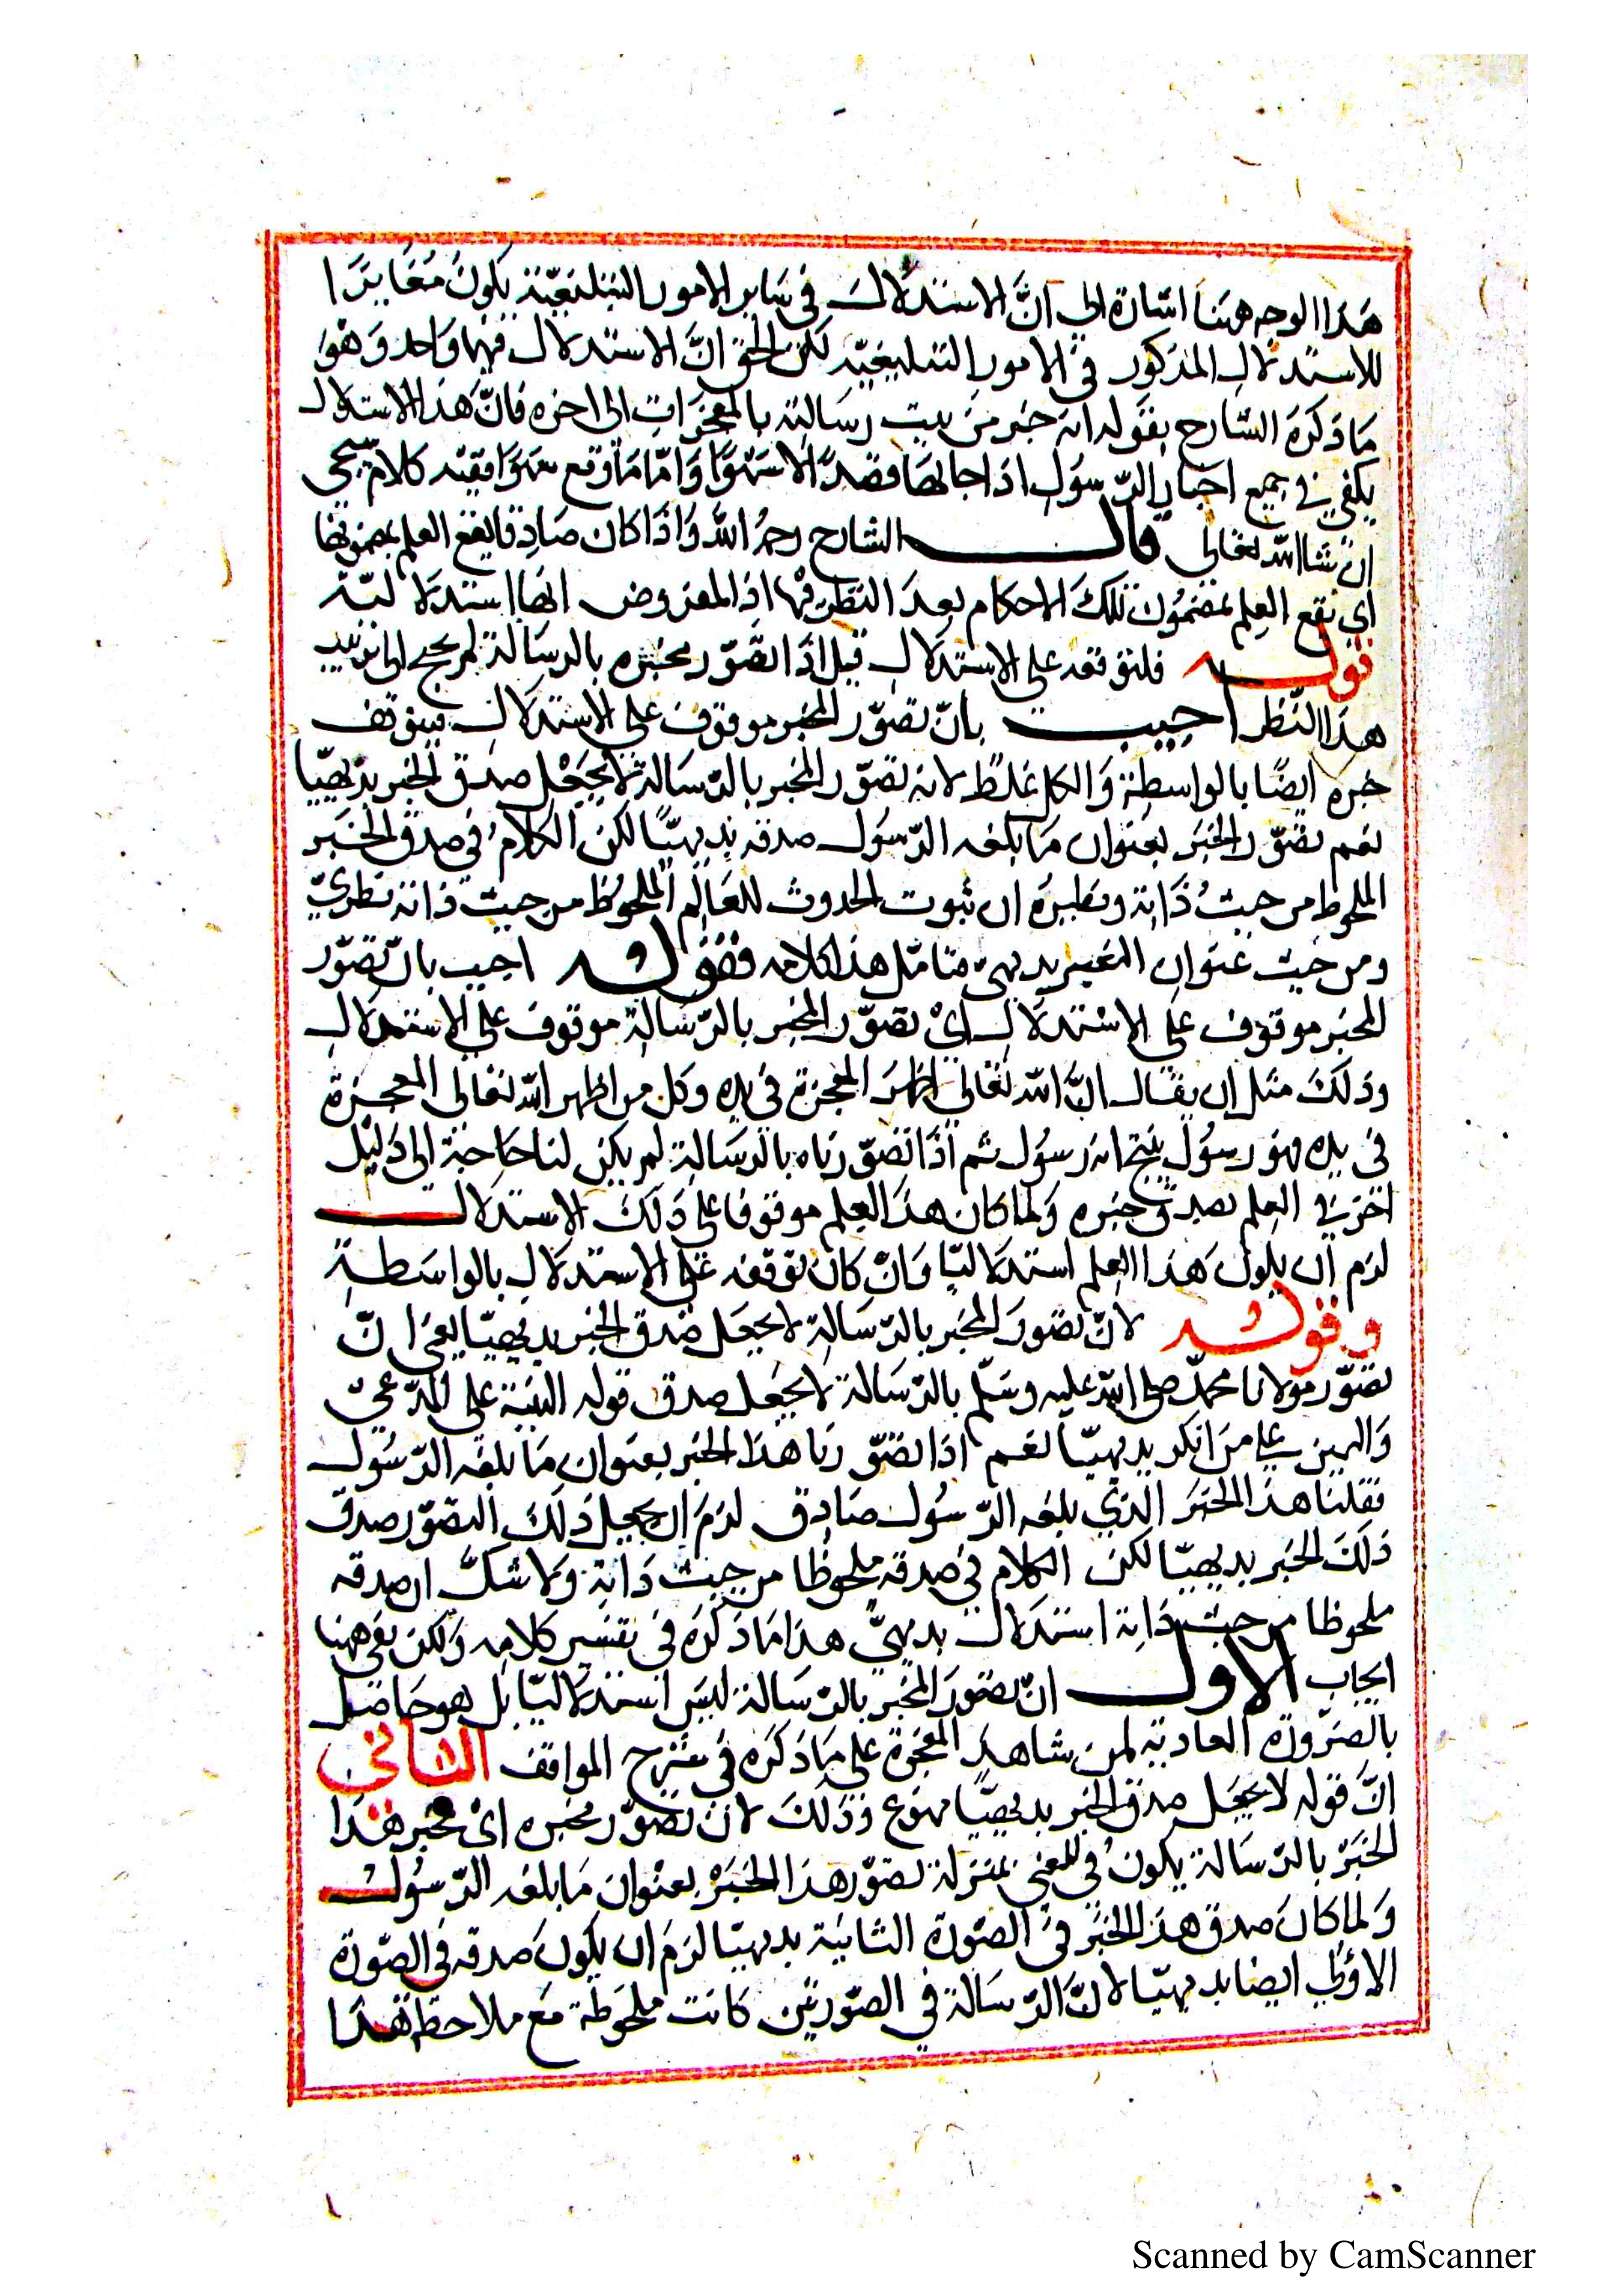 هذا الوجه هنا اشارة الي انّ الاستدلال في ساير الامور التبليغيّة يكون مغايرًا
للاستدلال المذكور في الامور التبليغيّة لكن الحق انّ الاستدلال فيهما واحد وهو
ما ذكره الشارح بقوله انه خبر من يثبت رسالته بالمعجزات الى اخره فانّ هذا الاستدلال
يكفي في جميع اخبار الرّسول اذا جا بها قصدًا لا سهوًا وامّا ما وقع سهوًا ففيه كلام سيجي
ان شا الله تعالى قال الشارح رحمه الله واذا كان صادقا يقع العلم بمضمونها
اى يقع العلم بمضمون تلك الاحكام بعد النظر فيها اذ المفروض انها استدلالية
قوله فلتوقفه علي الاستدلال قيل اذا تصوّر مخبره بالرسالة لم يحتج الى ترتيب
هذا النّظر اجيب بانّ تصوّر المخبر موقوف على الاستدلال فيتوقف
خبره ايضًا بالواسطة والكل غلط لانه تصوّر المخبر بالرّسالة لا يجعل صدق الخبر بديهيّا
نعم تصوّر الخبر بعنوان ما بلغه الرّسول صدقه بديهيّا لكن الكلام في صدق الخبر
الملحوظ من حيث ذاته ونظيره ان ثبوت الحدوث للعالم الملحوظ من حيث ذاته نظريّ
ومن حيث عنوان التغير بديهى فتامّل هذا كلامه فقوله اجيب بانّ تصوّر
المخبر موقوف علي الاستدلال اىْ تصوّر المخبر بالرّسالة موقوف على الاستدلال
وذلك مثل ان يقال انّ الله تعالى اظهر المعجزة في يده وكل من اظهر الله تعالى المعجزة
في يده فهو رسول ينتج انه رسول ثم اذا تصوّرناه بالرسالة لم يكن لنا حاجة الى دليل
اخر في العلم بصدق خبره ولما كان هذا العلم موقوفا على ذلك الاستدلال
لزم ان يكون هذا العلم استدلاليّا وان كان توقفه على الاستدلال بالواسطة
وقوله لانّ تصور المخبر بالرّسالة لا يجعل صدق الخبر بديهيّا يعنى انّ
تصوّر مولانا محمّد صلى الله عليه وسلّم بالرّسالة لا يجعل صدق قوله البينة على المدّعيّ
واليمين على من انكر بديهيّا نعم اذا تصوّرنا هذا الخبر بعنوان ما بلغه الرّسول
فقلنا هذا الخبر الذي بلغه الرّسول صادق لزم ان يجعل ذلك التصوّر صدق
ذلك الخبر بديهيّا لكن الكلام في صدقه ملحوظا من حيث ذاته ولا شكّ ان صدقه
ملحوظا من حيث ذاته استدلال بديهيّ هذا ما ذكره في تفسير كلامه ولكن بقي ههنا
ابحاث الاول انّ تصور المخبر بالرّسالة ليس استدلاليّا بل هو حاصل
بالضرورة العادية لمن شاهد المعجزة على ما ذكره في شرح المواقف الثاني
انّ قوله لا يجعل صدق الخبر بديهيّا ممنوع وذلك لانّ تصوّر مخبره اىْ مخبر هذا
الخبر بالرّسالة يكون في المعني بمنزلة تصوّر هذا الخبر بعنوان ما بلغه الرّسول
ولما كان صدق هذا الخبر في الصّورة الثانية بديهيّا لزم ان يكون صدقه في الصّورة
الاولي ايضا بديهيّا لانّ الرّسالة في الصّورتين كانت ملحوظة مع ملاحظة هذا
Scanned by CamScanner